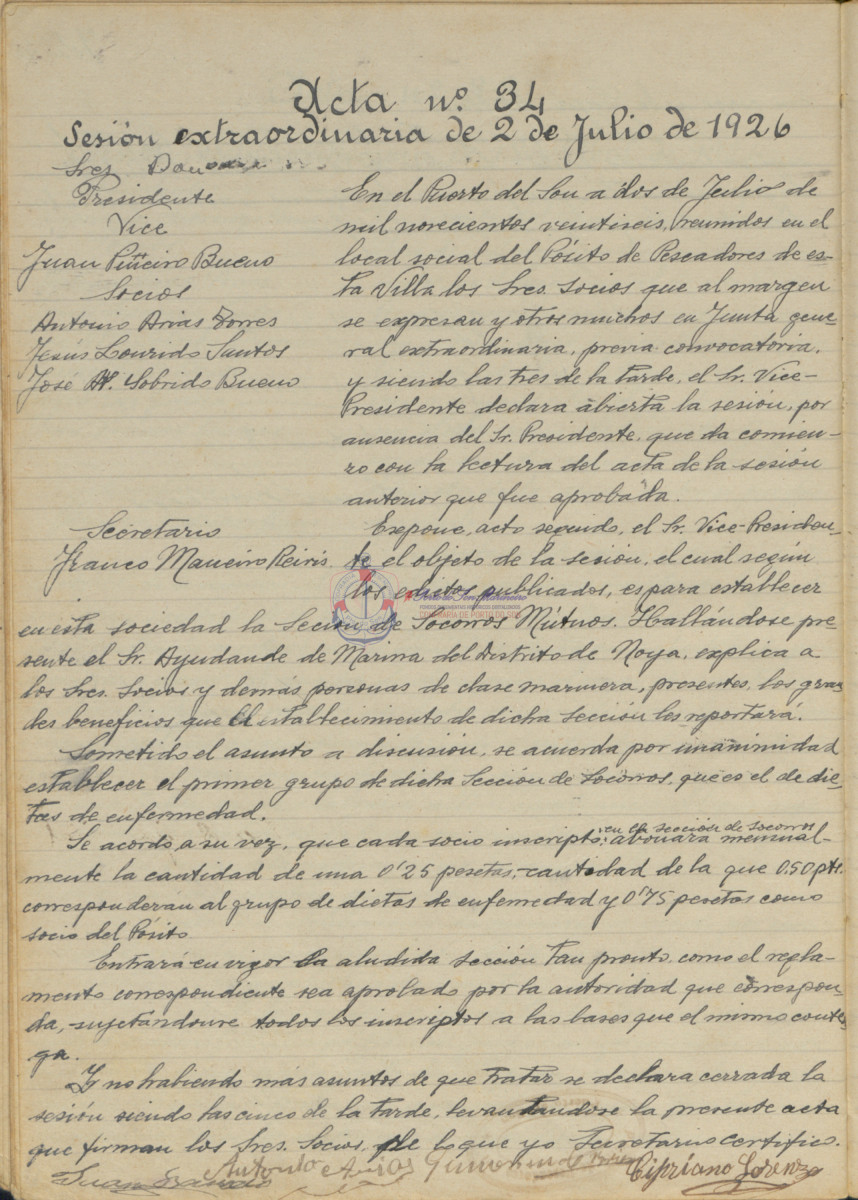 Acta nº 34
Sesión extraordinaria de 2 de Julio de 1926
Sres
Presidente
Vice
Juan Piñeiro Bueno
Socios
Antonio Arias Torres
Jesús Lourido Santos
José Mª. Sobrido Bueno
Secretario
Franco Maneiro Reiris
En el Puerto del Son a dos de Julio de
mil novecientos veintiseis, reunidos en el
local social del Pósito de Pescadores de es-
ta Villa los Sres. Socios que al margen
se expresan y otros muchos en Junta gene-
ral extraordinaria, previa convocatoria,
y siendo las tres de la tarde, el Sr. Vice-
Presidente declara abierta la sesión, por
ausencia del Sr. Presidente, que da comien-
zo con la lectura del acta de la sesión
anterior que fue aprobada.
Exepone, acto seguido, el Sr. Vice-Presiden-
te el objeto de la sesión, el cual según
los edictos publicados, es para establecer
en esta sociedad la Sección de Socorros Mútuos. Hallándose pre-
sente el Sr. Ayudande de Marina del Distrito de Noya, explica a
los Sres. Socios y demás personas de clase marinera, presentes, los gran
des beneficios que el establecimiento de dicha sección les reportará.
Sometido el asunto a discusión, se acuerda por unanimidad
establecer el primer grupo de dicha Sección de Socorros, que es el de die-
tas de enfermedad.
Se acordo a su vez, que cada socio inscripto en la sección de socorros abonará mensual-
mente la cantidad de una 0'25 pesetas, cantidad de la que 0.50 pts.
corresponderán al grupo de dietas de enfermedad y 0'75 pesetas como
socio del Pósito
Entrará en vigor la aludida sección tan pronto, como el regla-
mento correspondiente sea aprobado por la autoridad que correspon-
da, sujetandose todos los inscriptos a las bases que el mismo conten
ga.
Y no habiendo más asuntos de que tratar se declara cerrada la
sesión siendo las cinco de la tarde, levantandose la presente acta
que firman los Sres. Socios, de lo que yo Secretario certifico.
Juan
Antonio Arias
Cipriano Lorenzo